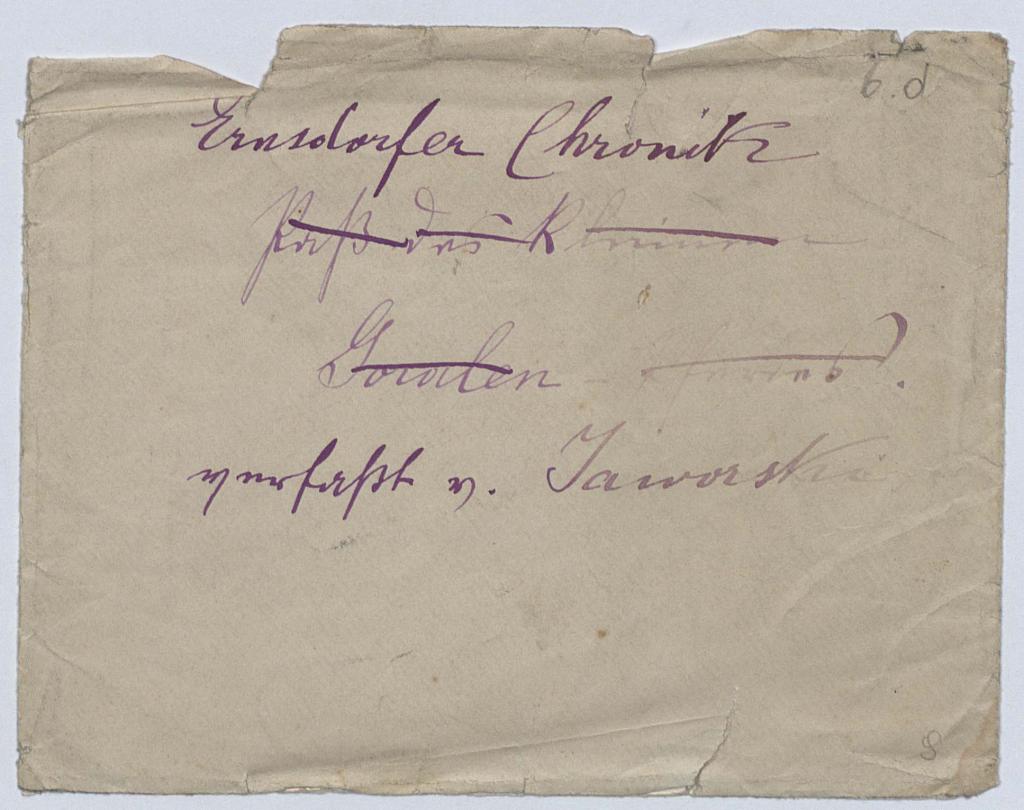 6.d
Ernsdorfer Chronik
Paß des Kleinen
Goralen
verfaßt v. Jaworski
8